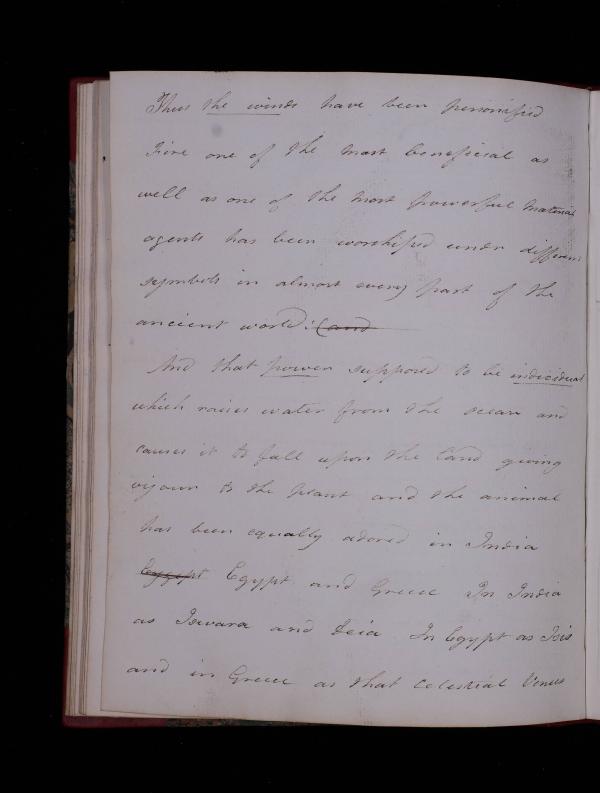 Thus the winds have been personified
Fire one of the most beneficial as
well as one of the most powerful material
agents has been worshiped under different
symbols in almost every part of the
ancient world: (and
And that power supposed to be individual
which raises water from the ocean and
causes it to fall upon the land giving
vigour to the plant and the animal
has been equally adored in India
Egypt Egypt and Greece In India
as Iswara and In Egypt as Isis
and in Greece as that celestial Venus